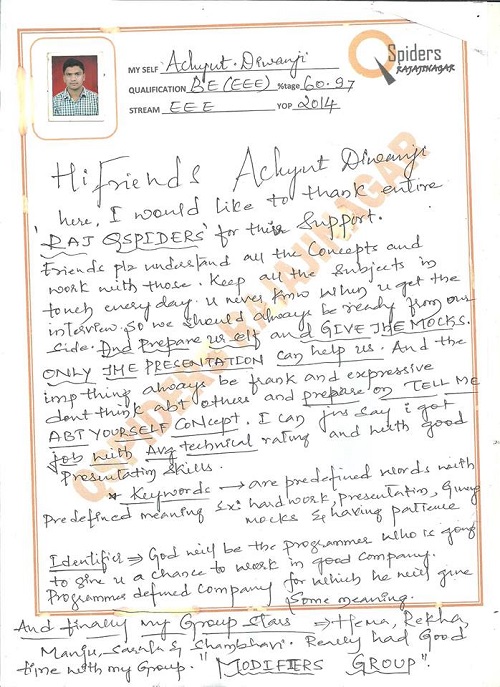 Q Spiders
RAJAJINAGAR
MY SELF Achyut. Diwanji
QUALIFICATION BE (EEE) %tage 60.97
STREAM EEE YOP 2014
Hi friends Achyut Diwanji
here, I would like to thank entire
'RAJ QSPIDERS' for their Support.
Friends plz understand all the Concepts and
work with those. Keep all the Subjects in
touch every day. u never know when u get the
interview. So we should always be ready from our
side. And prepare us elf and GIVE THE MOCKS.
ONLY THE PRESENTATION can help us. And the
imp thing always be frank and expressive
dont think abt others and prepare on TELL ME
ABT YOURSELF CONCEPT. I can jus say i got
job with Avg technical rating and with good
Presentation skills.
* Keywords → are predefined words with
Predefined meaning Ex: hardwork, presentation, Giving
mocks & having patience
Identifier ⇒ God will be the programmer who is going
to give u a chance to work in good company.
Programmer defined Company for which he will give
Some meaning.
And finally my Group stars ⇒ Hema, Rekha,
Manju, Sarala & Shambhavi. Really had Good
time with my Group. "MODIFIERS GROUP".